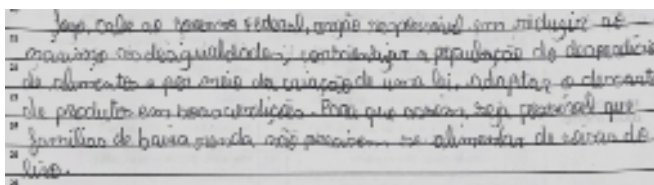 Logo, cabe ao governo federal, órgão responsável em reduzir ao
máximo as desigualdades, conscientizar a população do desperdício
de alimentos e por meio da criação de uma lei, adaptar o descarte
de produtos em boas condições. Para que assim, seja possível que
famílias de baixa renda não precisem se alimentar de sobras do
lixo.